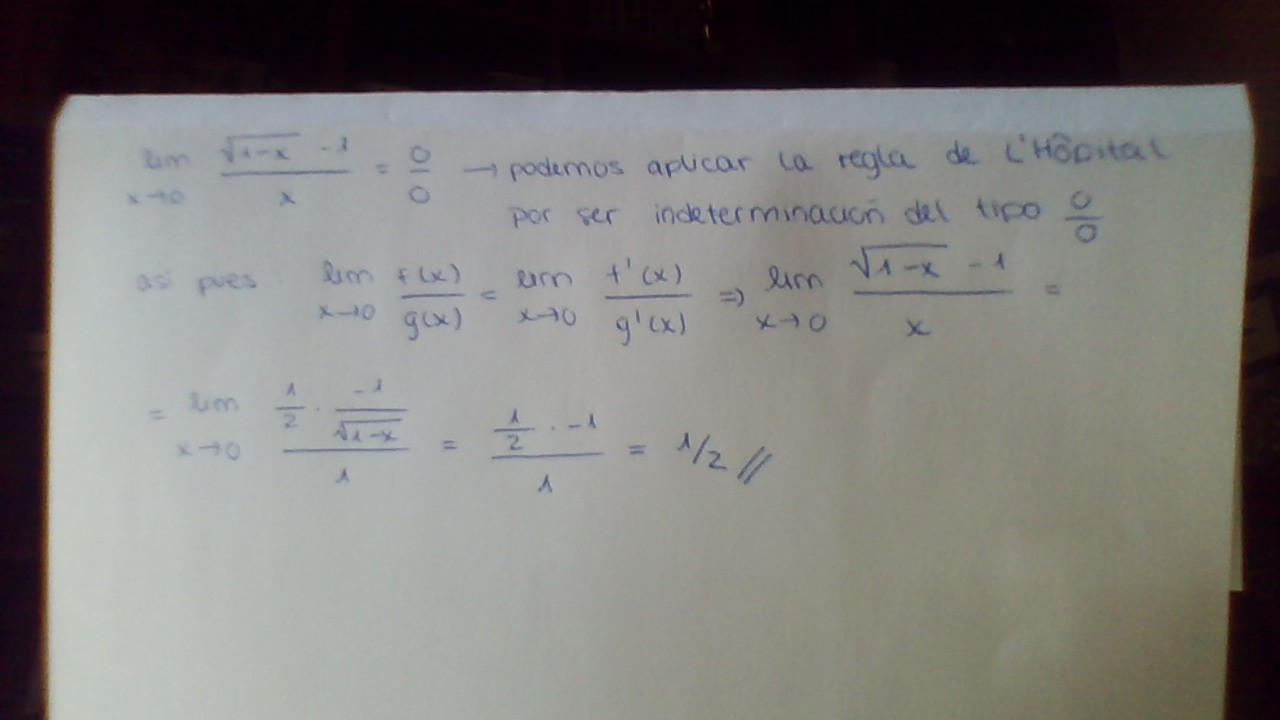 lim x→0 (√(1-x) -1)/x = 0/0 → podemos aplicar la regla de L'Hôpital
por ser indeterminación del tipo 0/0
así pues: lim x→0 f(x)/g(x) = lim x→0 f'(x)/g'(x) ⇒ lim x→0 (√(1-x) -1)/x =
= lim x→0 (1/2 · -1/√(1-x))/1 = (1/2 · -1)/1 = 1/2 //